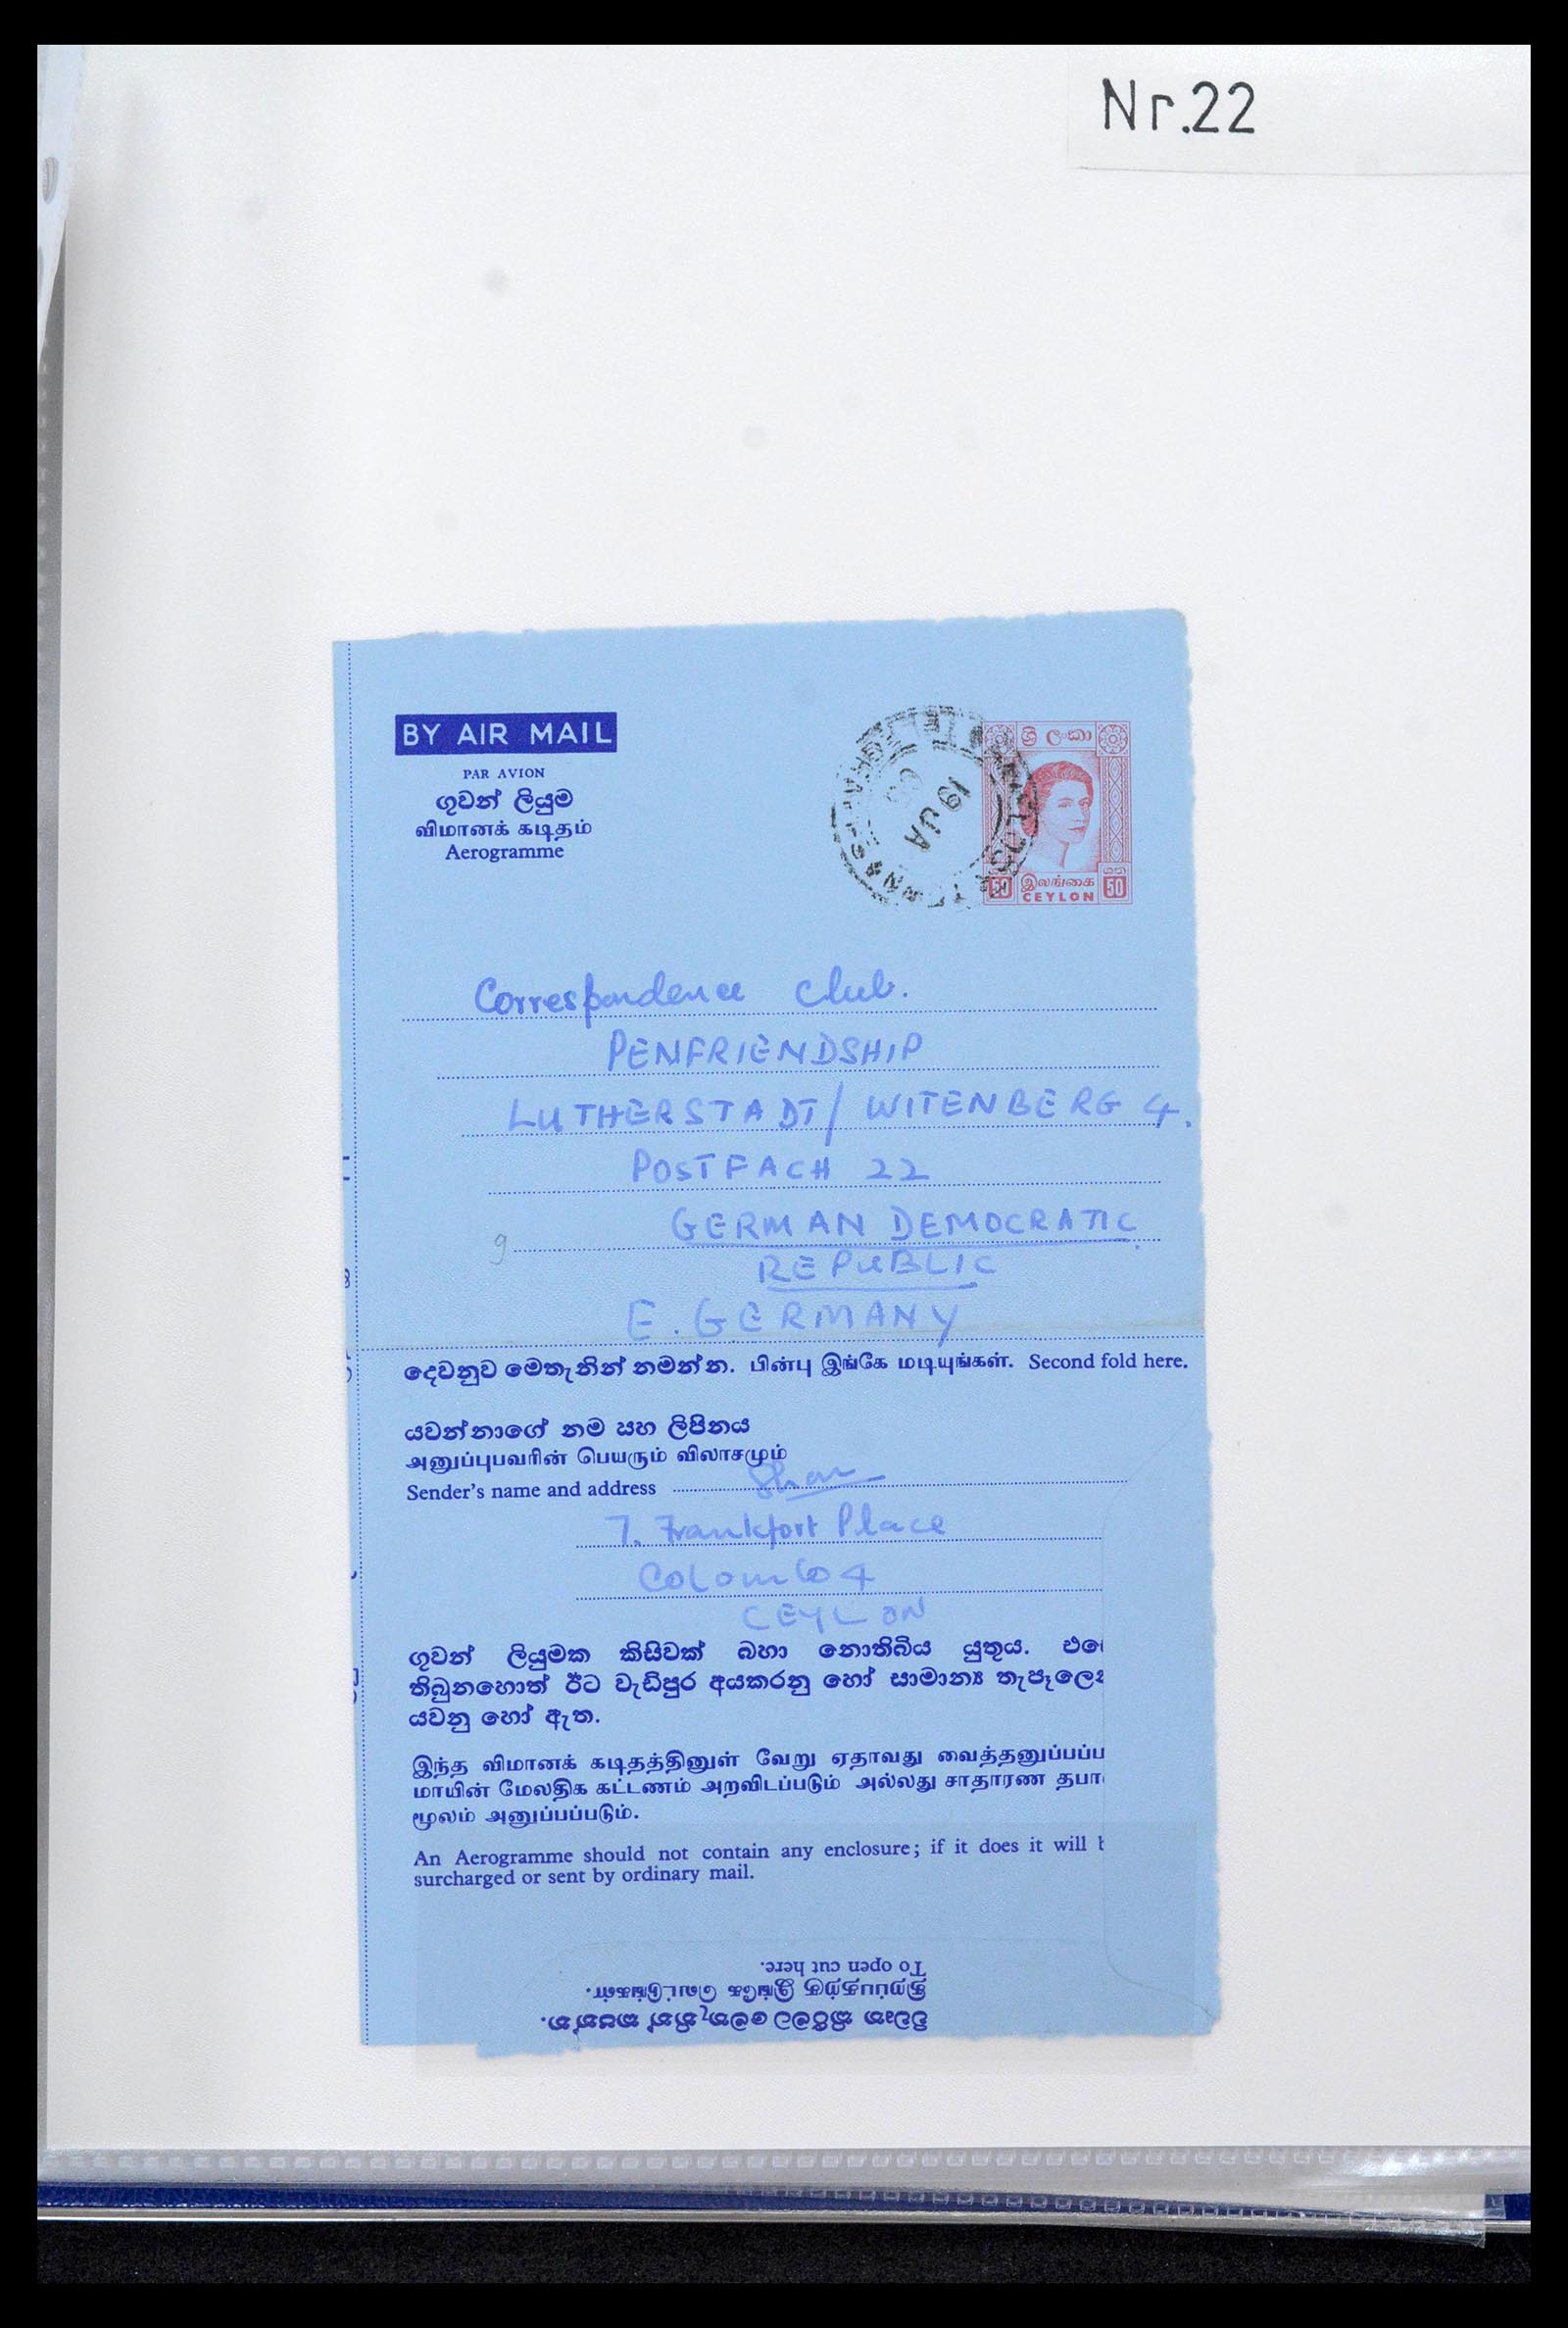 Nr.22
BY AIR MAIL
PAR AVION
ගුවන් ලියුම
விமானக் கடிதம்
Aerogramme
19 JA
ශ්‍රී ලංකා
50 இலங்கை 50
CEYLON
Correspondence Club.
PENFRIENDSHIP
LUTHERSTADT/ WITENBERG 4.
POSTFACH 22
9 GERMAN DEMOCRATIC
REPUBLIC
E. GERMANY
දෙවනුව මෙතැනින් නමන්න. பின்பு இங்கே மடியுங்கள். Second fold here.
යවන්නාගේ නම සහ ලිපිනය
அனுப்புபவரின் பெயரும் விலாசமும்
Sender's name and address
7. Frankfort Place
Colombo 4
CEYLON
ගුවන් ලියුමක කිසිවක් බහා නොතිබිය යුතුය.
තිබුනහොත් ඊට වැඩිපුර අයකරනු හෝ සාමාන්‍ය
යවනු හෝ ඇත.
இந்த விமானக் கடிதத்தினுள் வேறு ஏதாவது வைத்தனுப்பப்ப
மாயின் மேலதிக கட்டணம் அறவிடப்படும் அல்லது சாதாரண தபா
மூலம் அனுப்பப்படும்.
An Aerogramme should not contain any enclosure; if it does it will b
surcharged or sent by ordinary mail.
To open cut here.
திறப்பதற்கு இங்கே வெட்டுங்கள்.
විවෘත කිරීමට මෙතැනින් කපන්න.